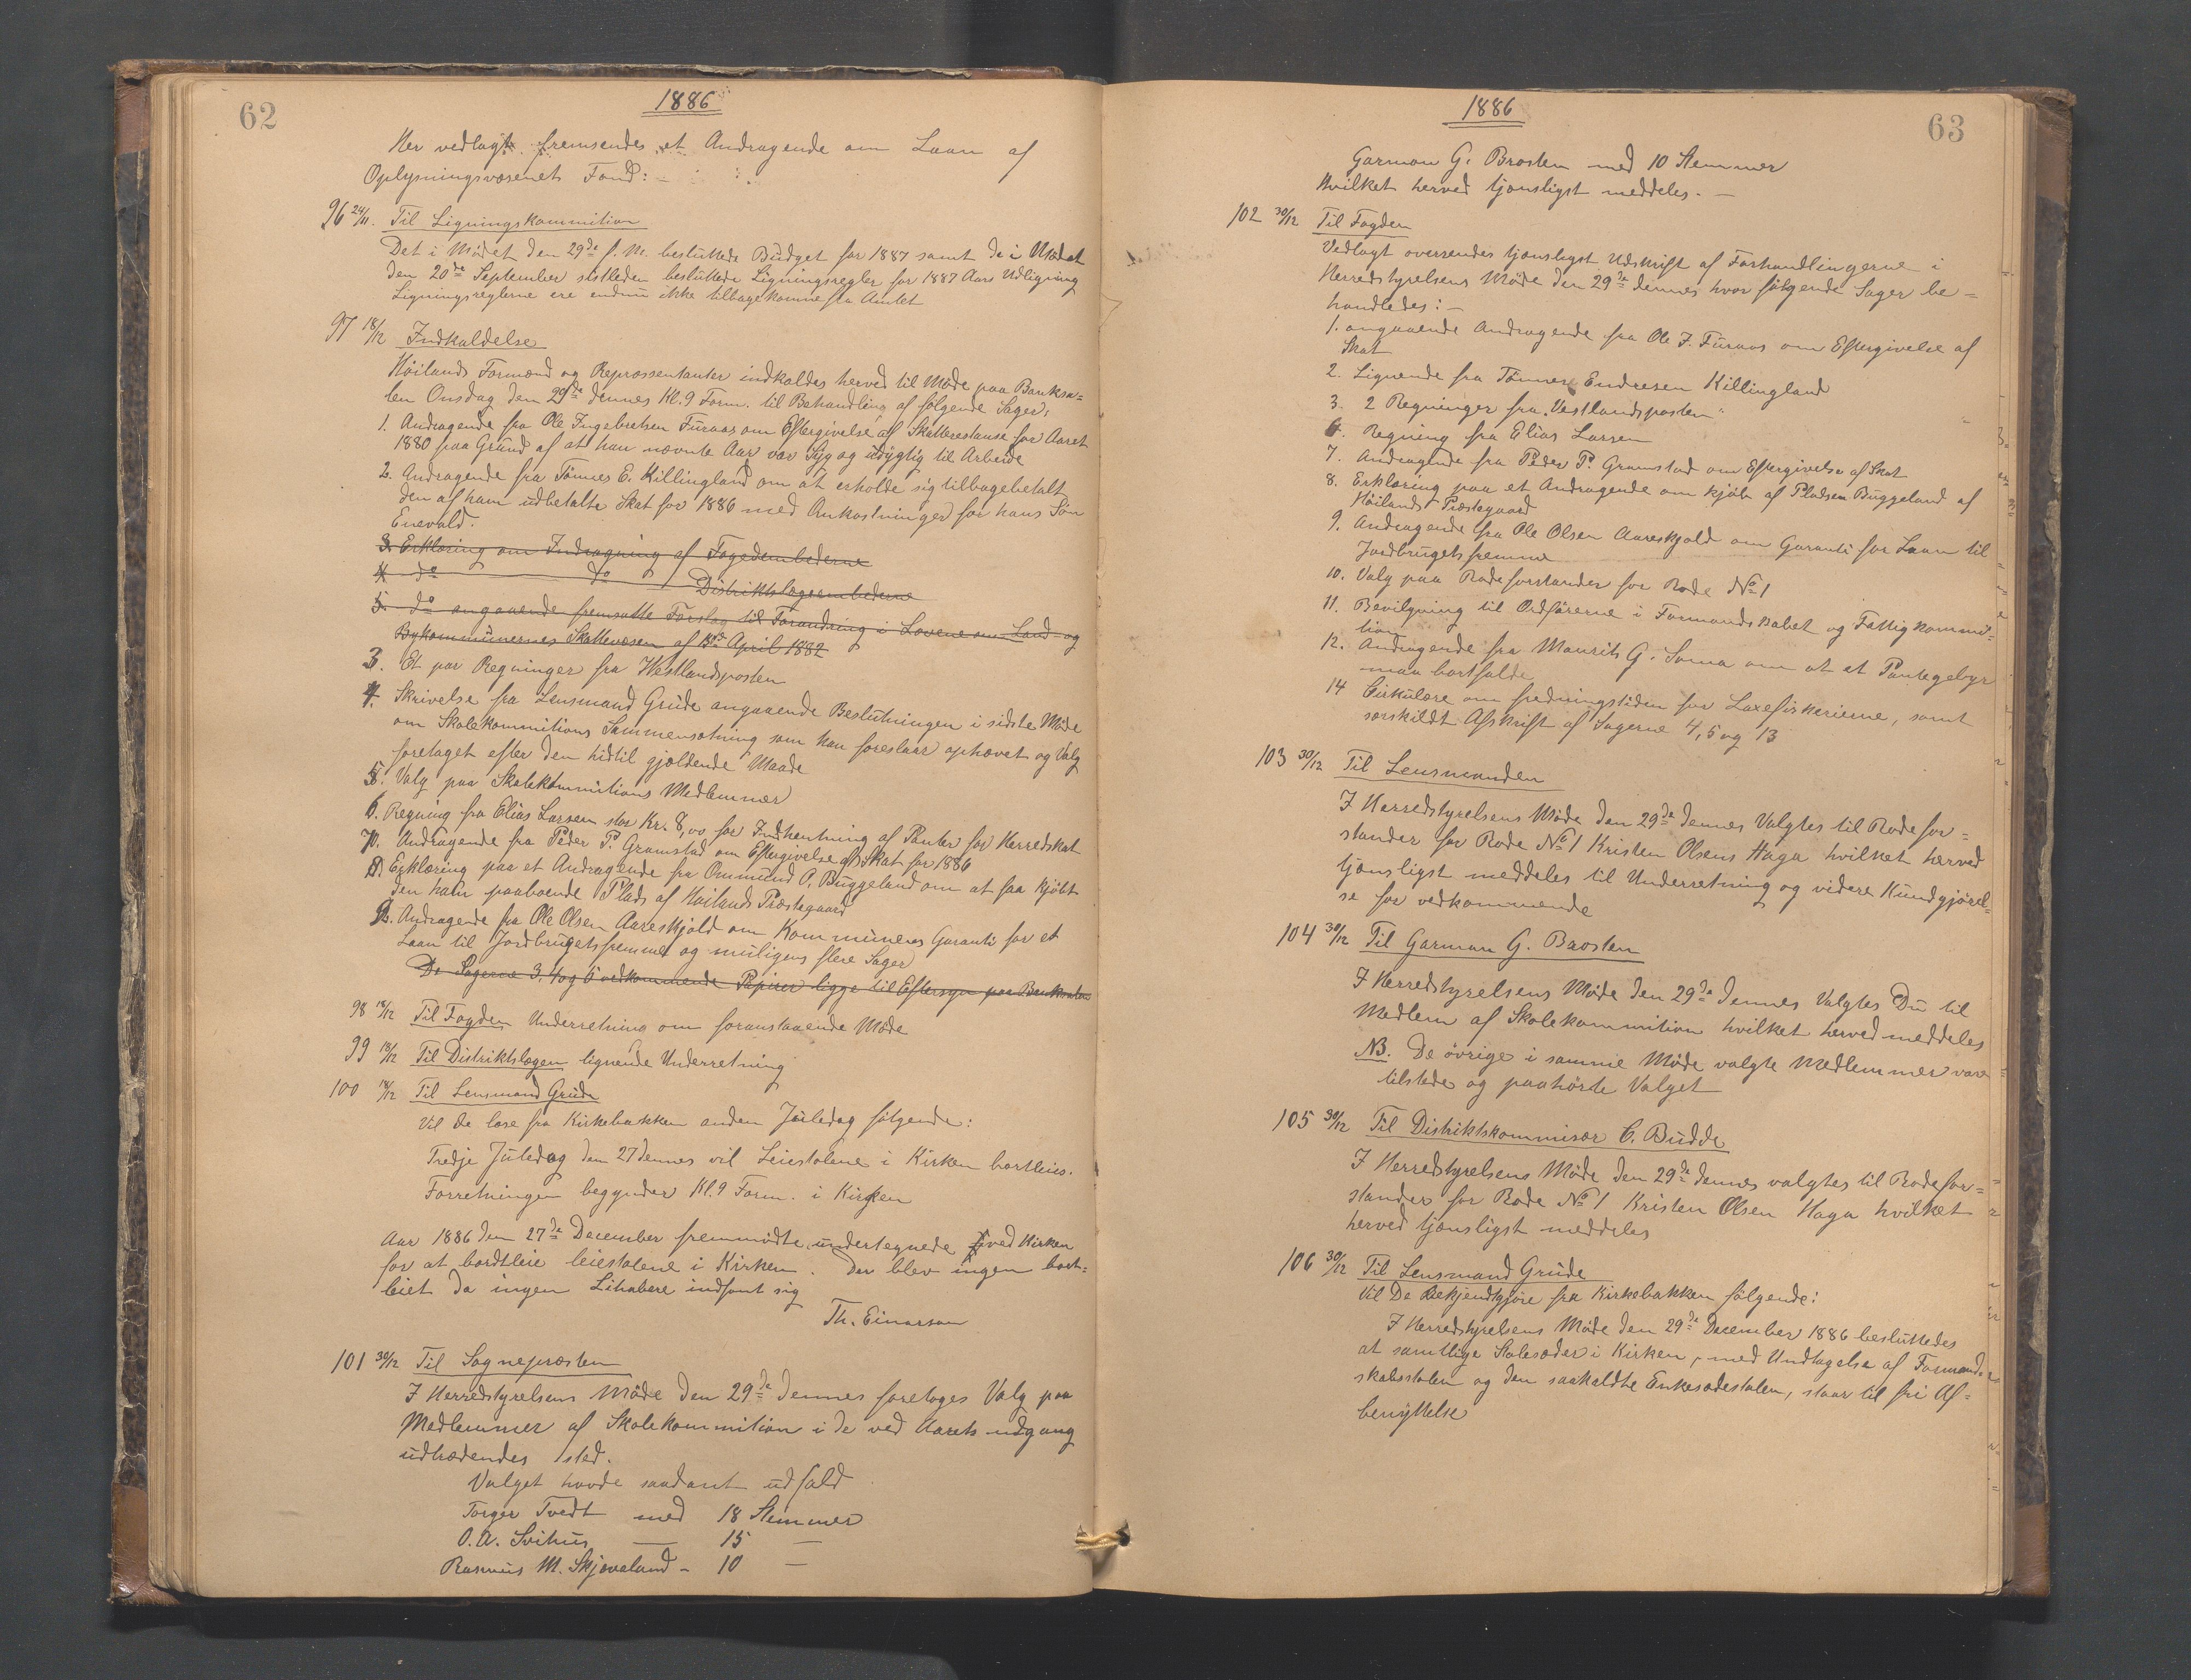 62
1886
Her vedlagt fremsendes et Andragende om Laan af
Oplysningsvæsenets Fond:
96 24/11. Til Ligningskommition
Det i Mødet den 29de f. M. besluttede Budget for 1887 samt de i Mødet
den 20de September sistleden besluttede Ligningsregler for 1887 Aars Udligning
Ligningsreglerne ere endnu ikke tilbagekomne fra Amtet
97 18/12 Indkaldelse
Høilands Formænd og Repræssentanter indkaldes herved til Møde paa Banksa=
len Onsdag den 29de dennes Kl. 9 Form. til Behandling af følgende Sager:
1. Andragende fra Ole Ingebretsen Furaas om Eftergivelse af Skatterestanse for Aaret
1880 paa Grund af at han nævnte Aar var Syg og udygtig til Arbeide
2. Andragende fra Tønnes E. Killingland om at erholde sig tilbagebetalt
den af ham udbetalte Skat for 1886 med Omkostninger for hans Søn
Enevald.
3. Erklæring om Inddragning af Fogedembederne
4. do do Distriktslægeembederne
5. do angaaende fremsatte Forslag til Forandring i Lovene om Land og
Bykommunernes Skattevæsen af 15de April 1882
3. Et par Regninger fra Vestlandsposten
4. Skrivelse fra Lensmand Grude angaaende Beslutningen i sidste Møde
om Skolekommitions Sammensætning som han foreslaar ophævet og Valg
foretaget efter den hidtil gjældende Maade
5. Valg paa Skolekommitions Medlemmer
6. Regning fra Elias Larsen stor Kr. 8,00 for Indhentning af Panter for Herredskat
7. Andragende fra Peder P. Gramstad om Eftergivelse af Skat for 1886
8. Erklæring paa et Andragende fra Ommund A. Buggeland om at faa kjøbt
den ham paaboende Plads af Høilands Præstegaard
9. Andragende fra Ole Olsen Aareskjold om Kommunens Garanti for et
Laan til Jordbrugets fremme og muligens flere Sager
De Sagerne 3, 4 og 5 vedkommende Papirer ligge til Eftersyn paa Banksalen
98 18/12 Til Fogden Underretning om foranstaaende Møde
99 18/12 Til Distriktslægen lignende Underretning
100 18/12 Til Lensmand Grude
Vil De læse fra Kirkebakken anden Juledag følgende:
Tredje Juledag den 27 dennes vil Leiestolene i Kirken bortleies.
Forretningen begynder Kl. 9 Form. i Kirken
Aar 1886 den 27de December fremmødte undertegnede ved Kirken
for at bortleie leiestolene i Kirken. Der blev ingen bort=
leiet da ingen Lihabere indfant sig
Th. Einarsen
101 30/12 Til Sognepræsten
I Herredstyrelsens Møde den 29de dennes foretoges Valg paa
Medlemmer af Skolekommition i de ved Aarets udgang
udtrædendes sted.
Valget havde saadant udfald
Torger Tvedt med 18 Stemmer
O. A. Svihus — 15 —
Rasmus M. Skjæveland - 10 —
63
1886
Garman G. Brosten med 10 Stemmer
Hvilket herved tjensligst meddeles. —
102 30/12 Til Fogden
Vedlagt oversendes tjensligst Udskrift af Forhandlingerne i
Herredstyrelsens Møde den 29de dennes hvor følgende Sager be=
handledes: —
1. angaaende Andragende fra Ole I. Furaas om Eftergivelse af
Skat
2. Lignende fra Tønnes Endresen Killingland
3. 2 Regninger fra „Vestlandsposten"
6. Regning fra Elias Larsen
7. Andragende fra Peder P. Gramstad om Eftergivelse af Skat
8. Erklæring paa et Andragende om kjøb af Pladsen Buggeland af
Høilands Præstegaard
9. Andragende fra Ole Olsen Aareskjold om Garanti for Laan til
Jordbrugets fremme
10. Valg paa Rodeforstander for Rode No 1
11. Bevilgning til Ordførerne i Formandskabet og Fattigkommis=
tion
12. Andragende fra Maurits G. Soma om at et Pantegebyr
maa bortfalde
14 Cirkulære om fredningstiden for Laxefiskerierne, samt
særskildt Afskrift af Sagerne 4, 5 og 13
103 30/12 Til Lensmanden
I Herredstyrelsens Møde den 29de dennes Valgtes til Rodefor=
stander for Rode No 1 Kristen Olsens Haga hvilket herved
tjensligst meddeles til Underretning og videre Kundgjørel=
se for vedkommende
104 30/12 Til Garman G. Brosten
I Herredstyrelsens Møde den 29de dennes Valgtes Du til
Medlem af Skolekommition hvilket herved meddeles
NB. De øvrige i samme Møde valgte Medlemmer vare
tilstede og paahørte Valget
105 30/12 Til Distriktskommisær C. Budde
I Herredstyrelsens Møde den 29de dennes valgtes til Rodefor=
stander for Rode No 1 Kristen Olsen Haga hvilket
herved tjensligst meddeles
106 30/12 Til Lensmand Grude
Vil De Bekjendtgjøre fra Kirkebakken følgende:
I Herredstyrelsens Møde den 29de December 1886 besluttedes
at samtlige Stolesæder i Kirken, med Undtagelse af Formand=
skabsstolen og den saakaldte Enkesædestolen, staar til fri Af=
benyttelse